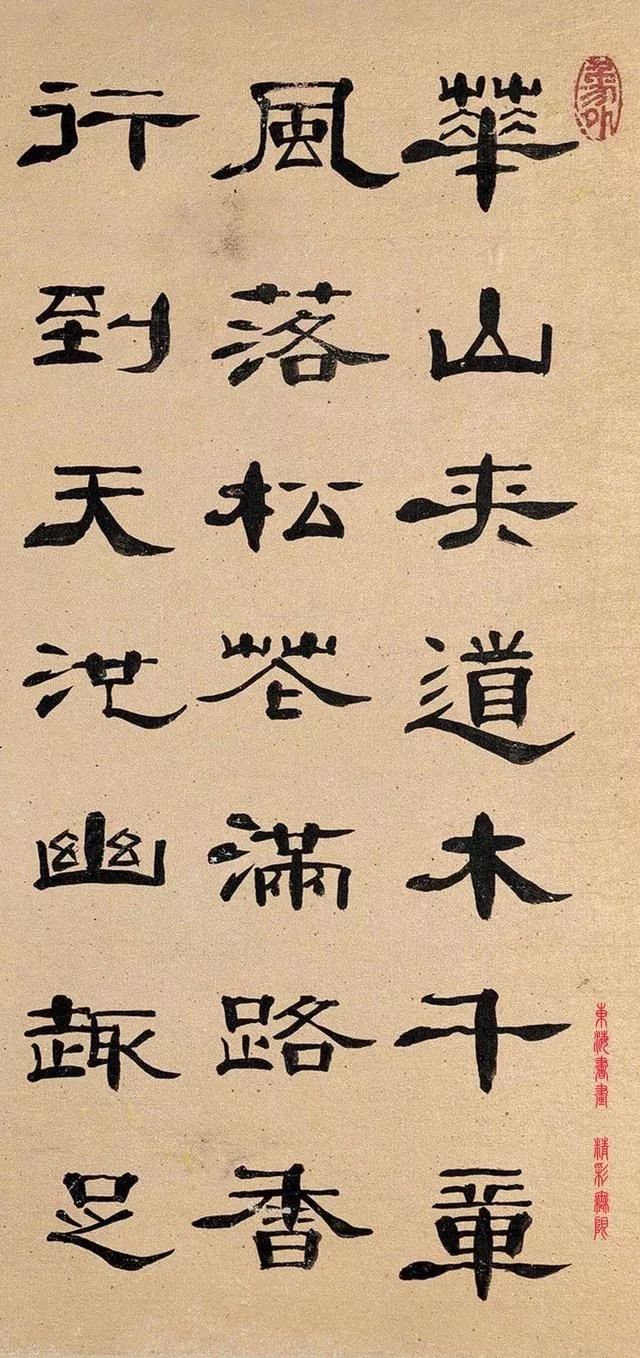 東海書畫 精彩無限
華山夾道木千章
風落松花滿路香
行到天池幽趣足